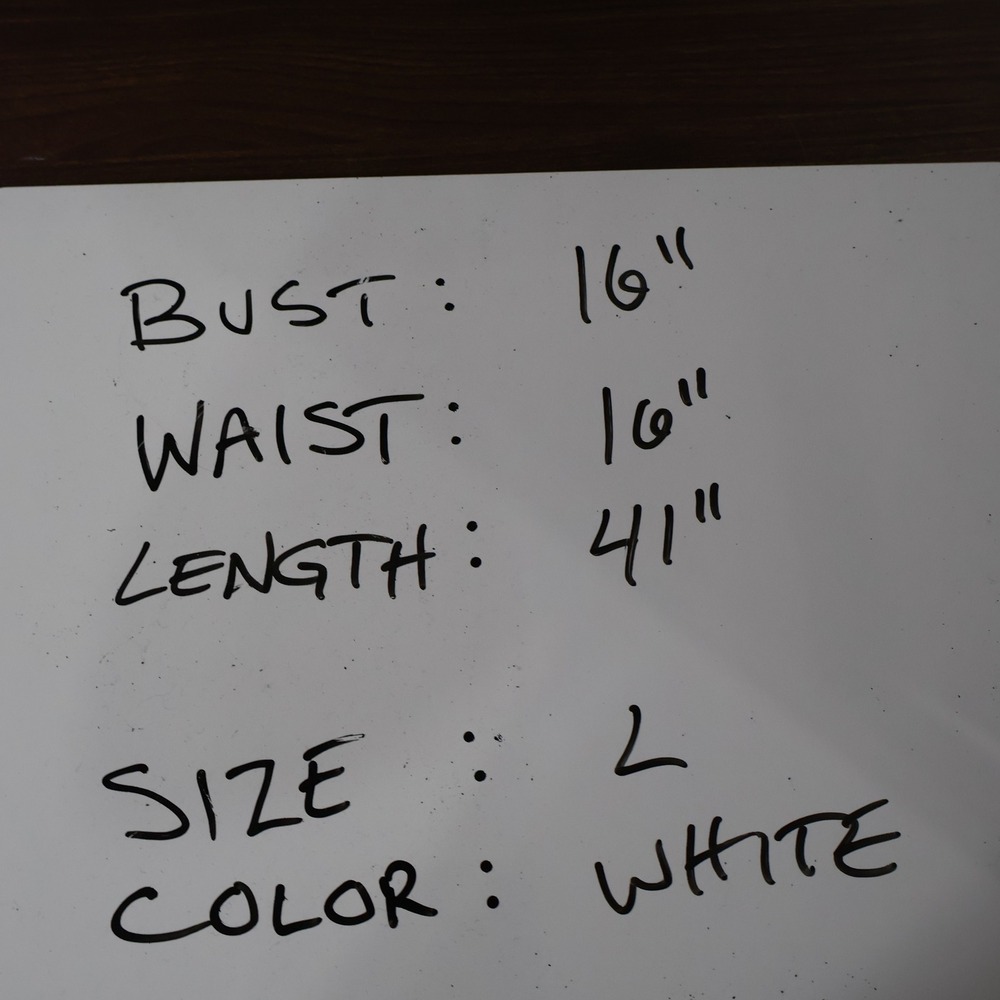 BUST: 16"
WAIST: 16"
LENGTH: 41"
SIZE : L
COLOR: WHITE